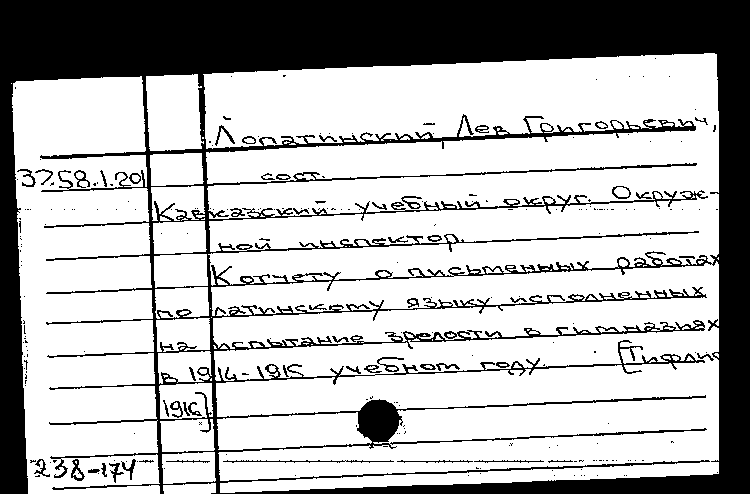 Лопатинский, Лев Григорьевич,
37.58.1.201 сост.
Кавказский учебный округ. Окруж-
ной инспектор.
К отчету о письменных работах
по латинскому языку, исполненных
на испытание зрелости в гимназиях
в 1914-1915 учебном году. [Тифлис
1916]
238-174